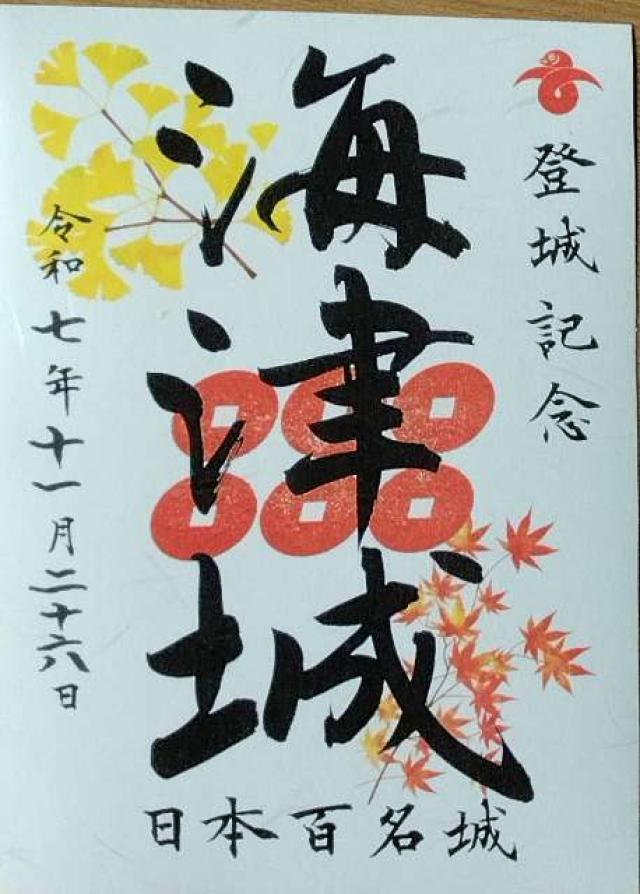 登城記念
海津城
令和七年十一月二十六日
日本百名城